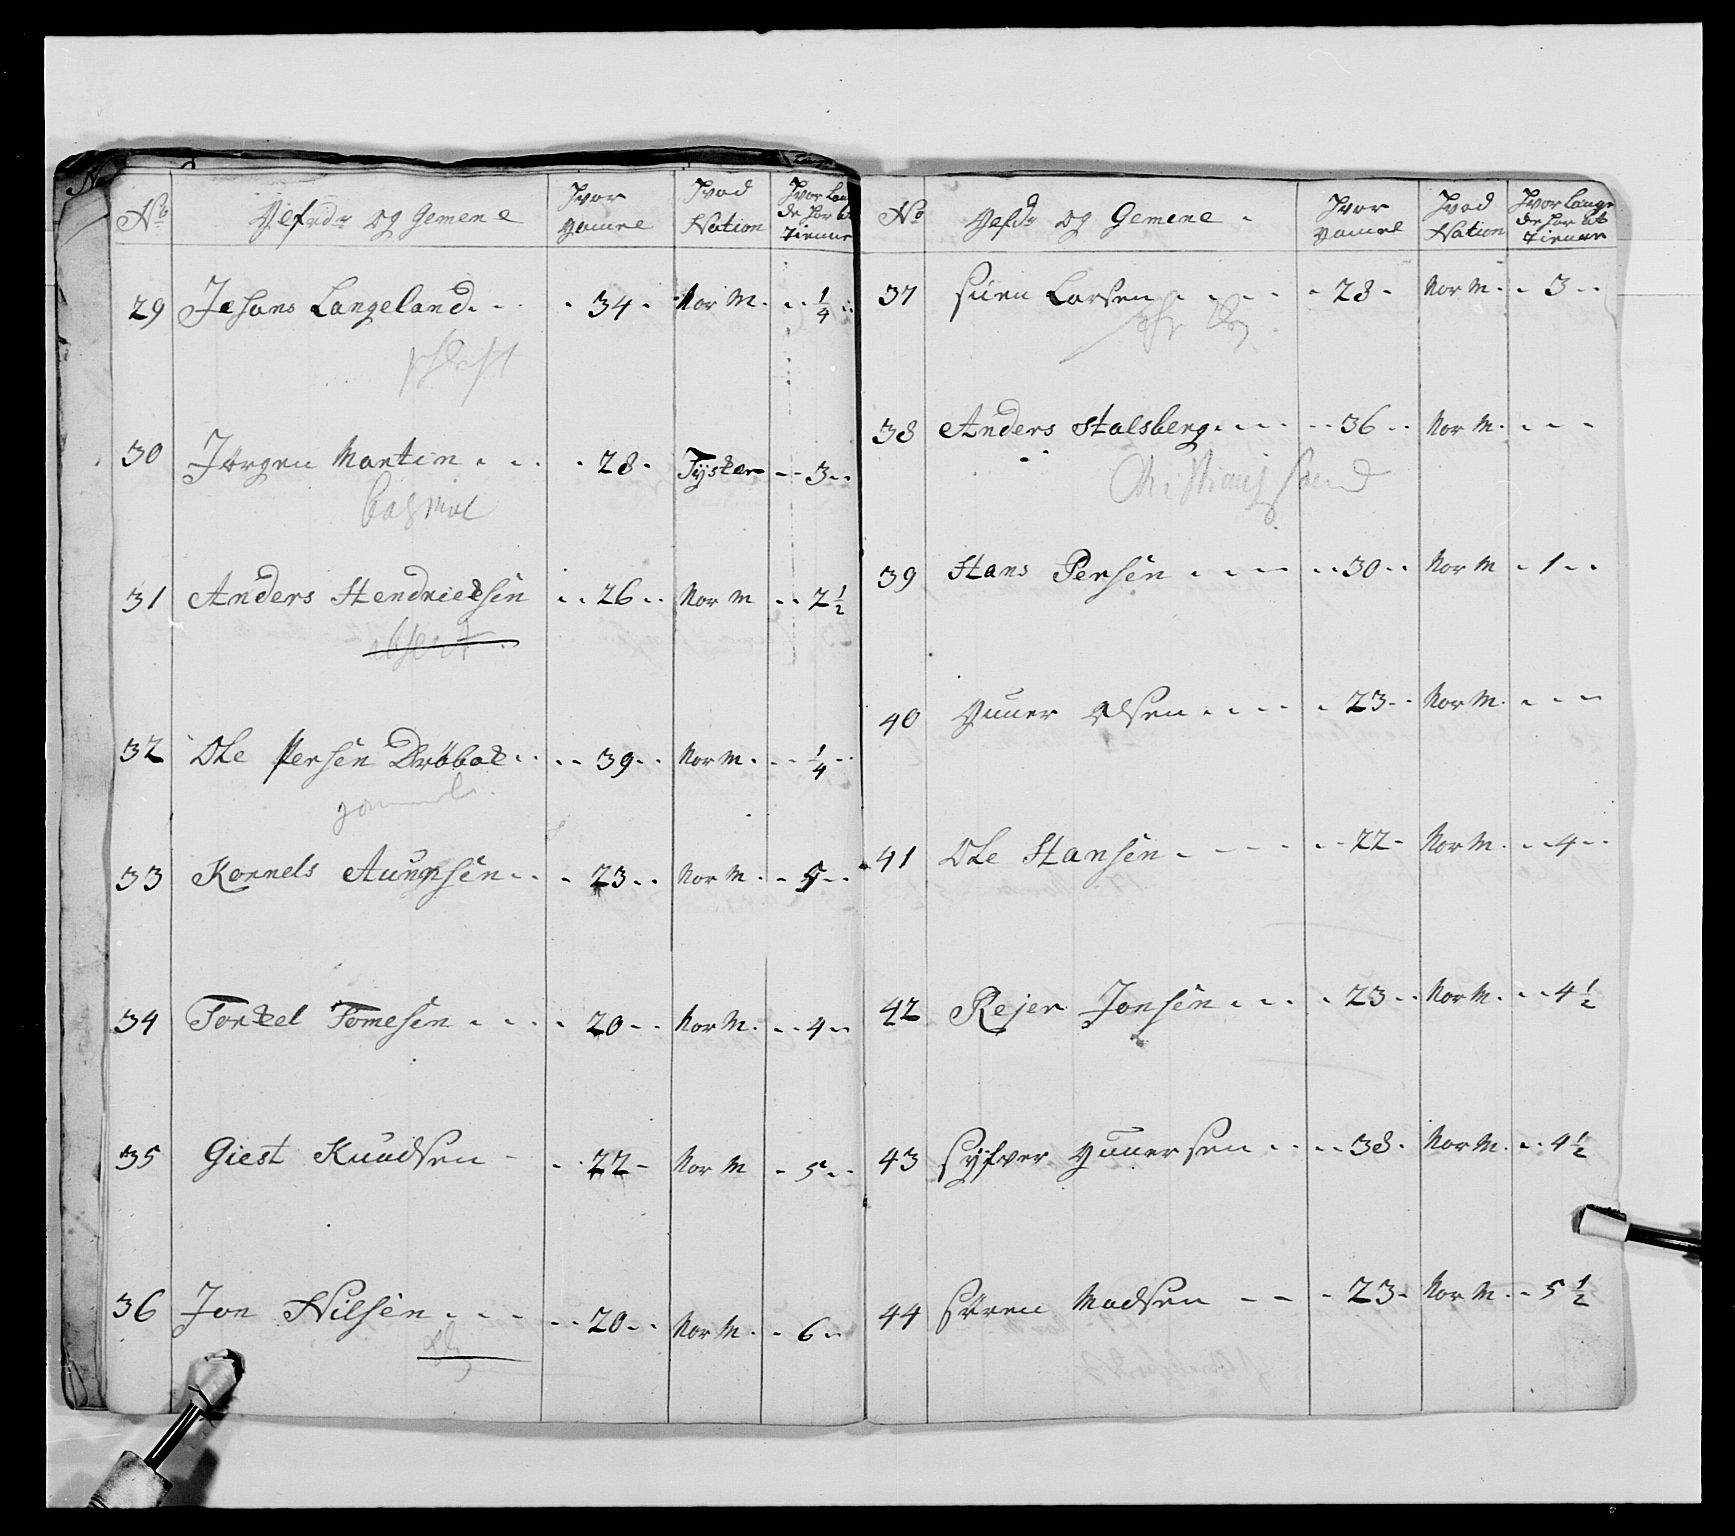 No Gefrdr og Gemene Hvor gamel Hvad Nation Hvor Lan de har tienne
29 Johans Langeland 34 Nor M. 1/4
30 Jørgen Martin 28 Tysker 3
31 Anders Hendricksen 26 Nor M 2 1/2
absent
32 Ole Persen Drøbak 39 Nor M. 1/4
33 Kornels Aunsen 23 Nor M. 5
34 Torkel Tomesen 20 Nor M. 4
35 Giest Knudsen 22 Nor M 5
36 Jon Nilsen 20 Nor M. 6
No Gefdr og Gemene Hvor gamel Hvad Nation Hvor Lange de har tienne
37 Süen Larsen 28 Nor M. 3
38 Anders Stalsberg 36 Nor M.
Christianssand
39 Hans Persen 30 Nor M 1
40 Guner Olsen 23 Nor M.
41 Ole Hansen 22 Nor M. 4
42 Rejer Jonsen 23 Nor M. 4 1/2
43 Syfver Gunersen 38 Nor M. 4 1/2
44 Søren Madsen 23 Nor M. 5 1/2